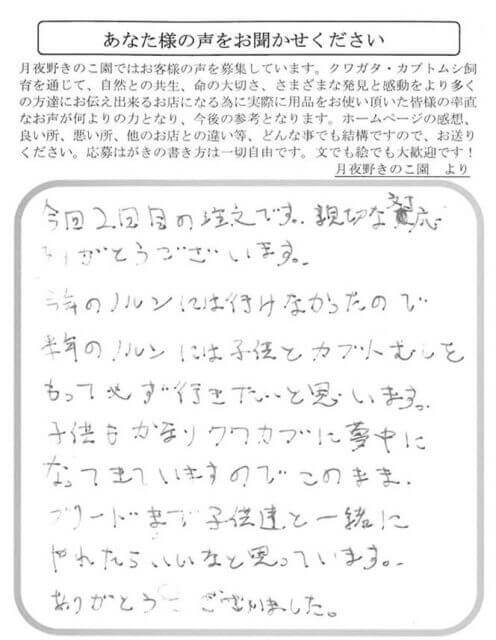 あなた様の声をお聞かせください
月夜野きのこ園ではお客様の声を募集しています。クワガタ・カブトムシ飼
育を通じて、自然との共生、命の大切さ、さまざまな発見と感動をより多く
の方達にお伝え出来るお店になる為に実際に用品をお使い頂いた皆様の率直
なお声が何よりの力となり、今後の参考となります。ホームページの感想、
良い所、悪い所、他のお店との違い等、どんな事でも結構ですので、お送り
ください。応募はがきの書き方は一切自由です。文でも絵でも大歓迎です！
月夜野きのこ園　より
今回2回目の注文です。親切な対応
ありがとうございます。
今年のノルンには行けなかったので
来年のノルンには子供とカブトむしを
もって必ず行きたいと思います。
子供もかなりクワカブに夢中に
なってきていますのでこのまま、
ブリードまで子供達と一緒に
やれたらいいなと思っています。
ありがとうございました。